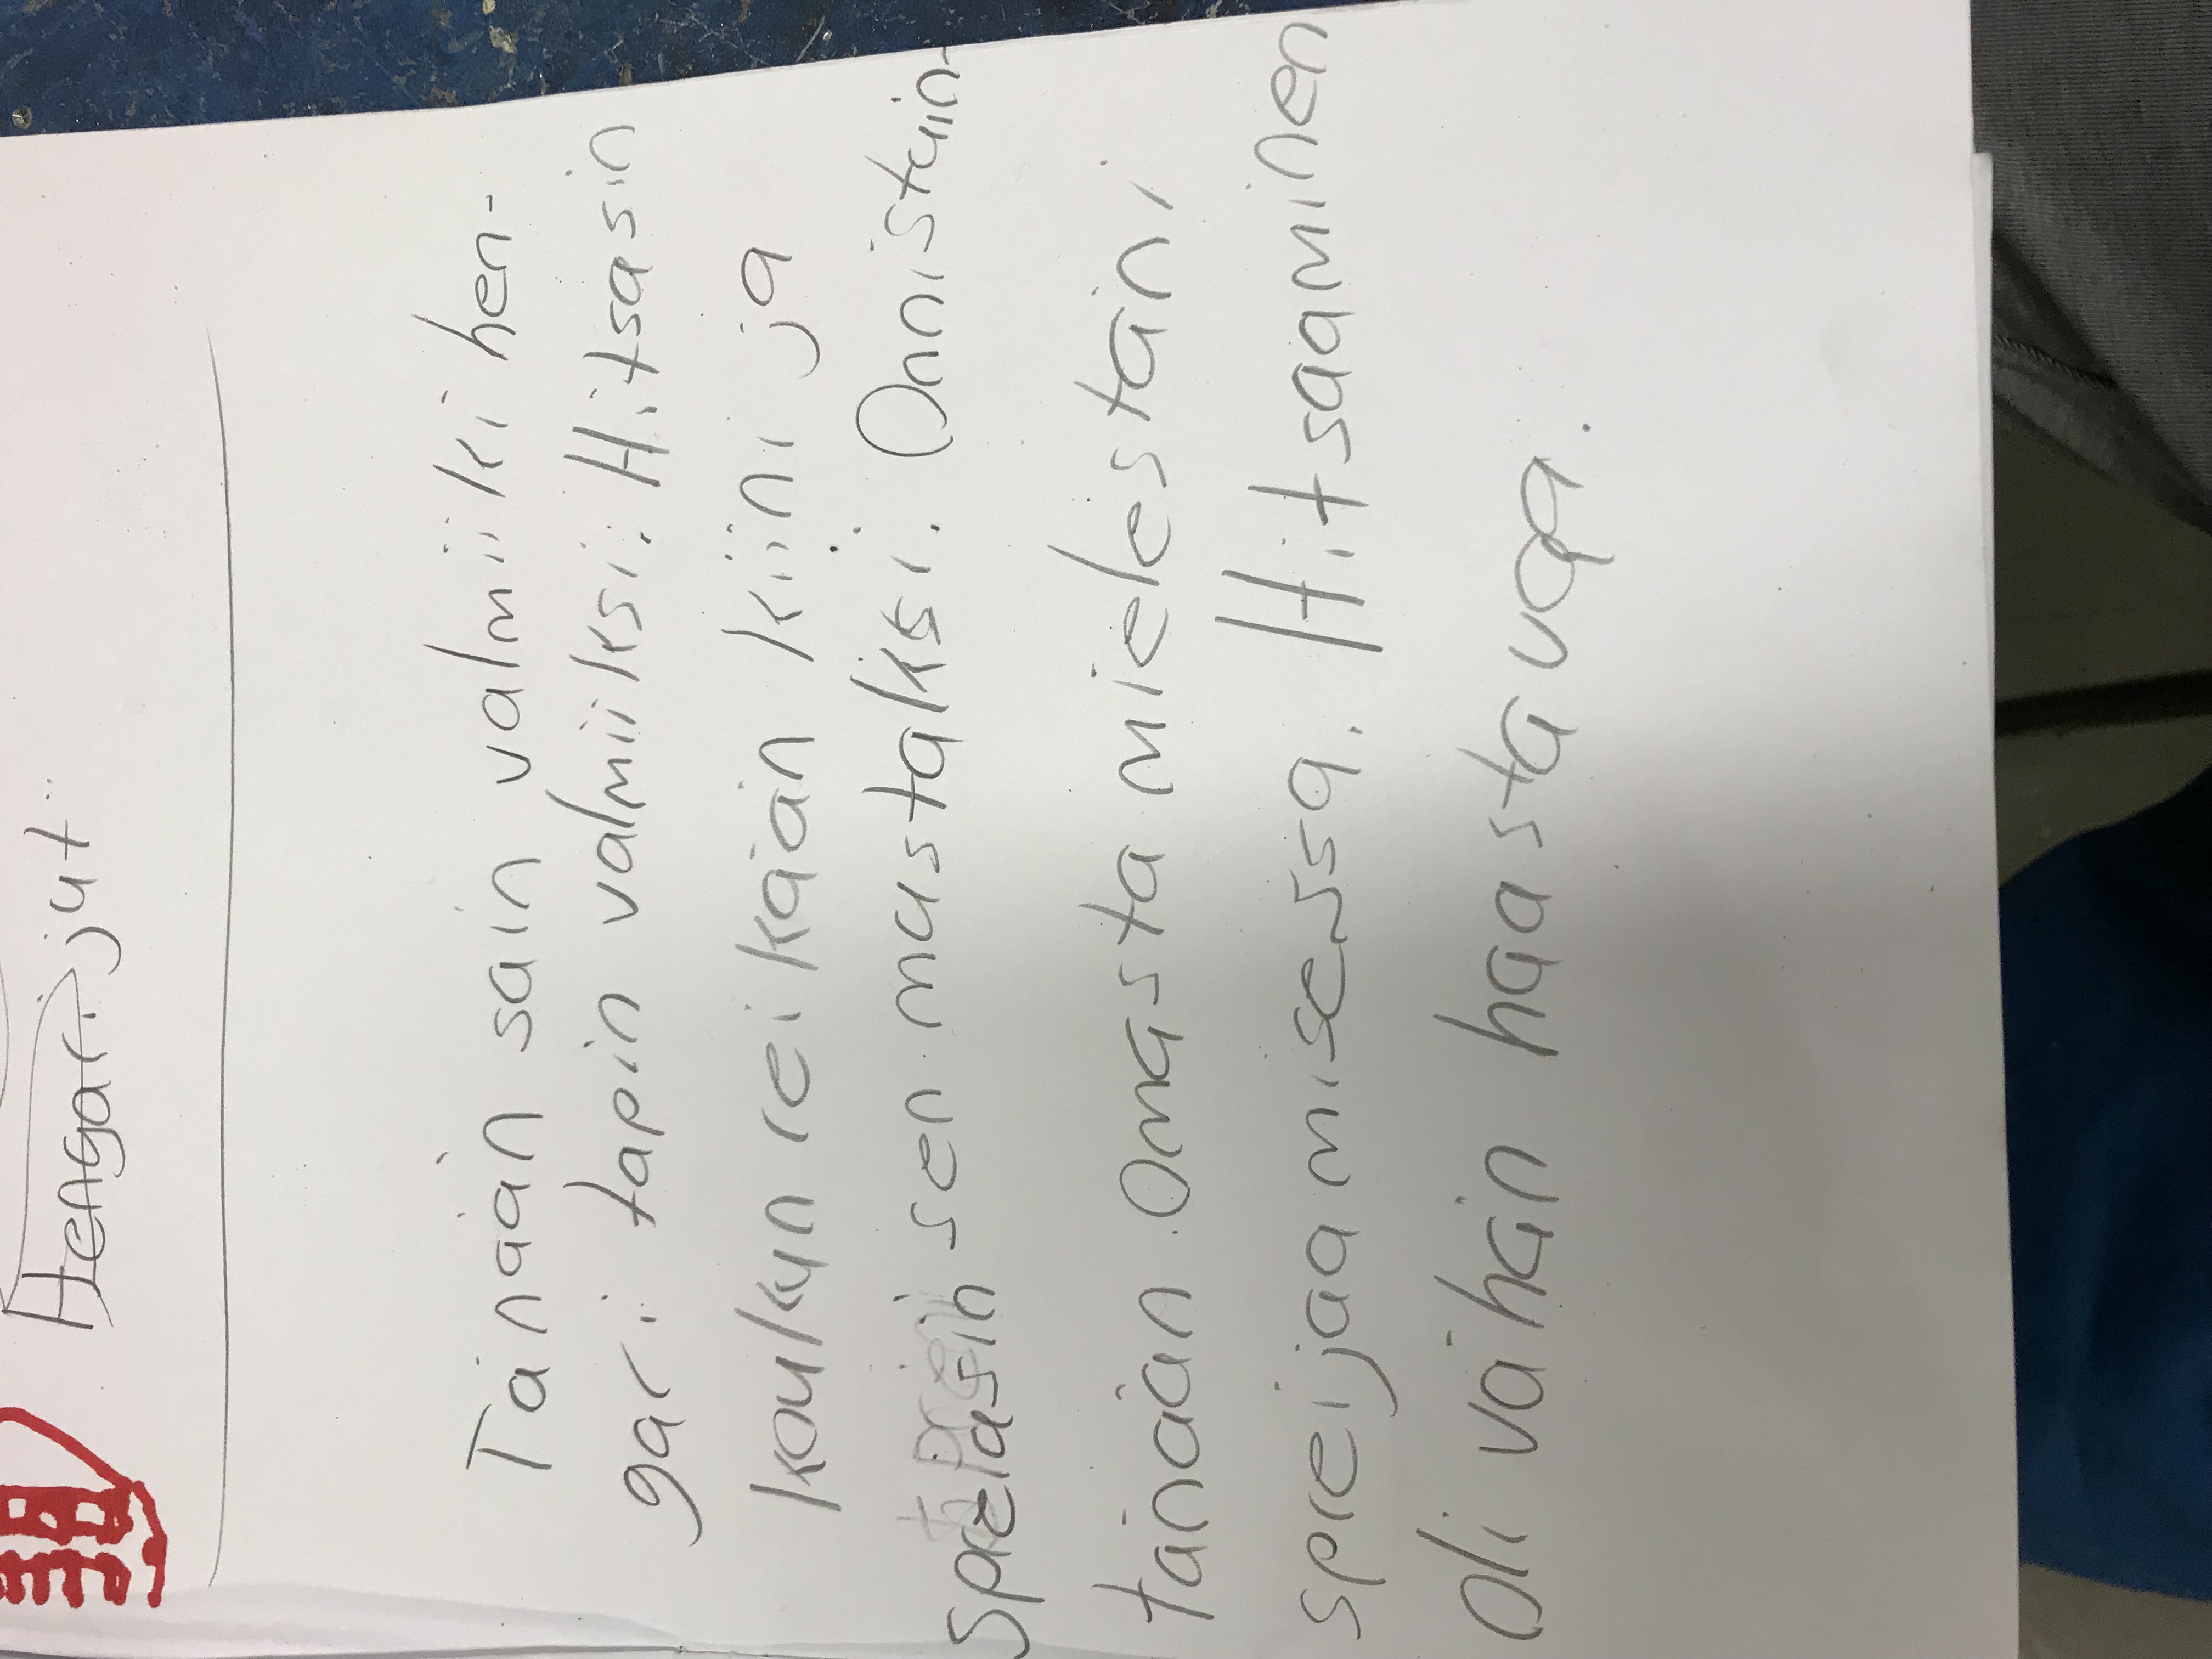 Hengari jut..
Tänään sain valmiiki hen-
gari tapin valmiiksi. Hitsasin
koulkun reikään kiini ja
Spreiasin sen mustaksi. Onnistuin
tänään omasta mielestäni
spreijaamisessa. Hitsaaminen
oli vähän haastavaa.